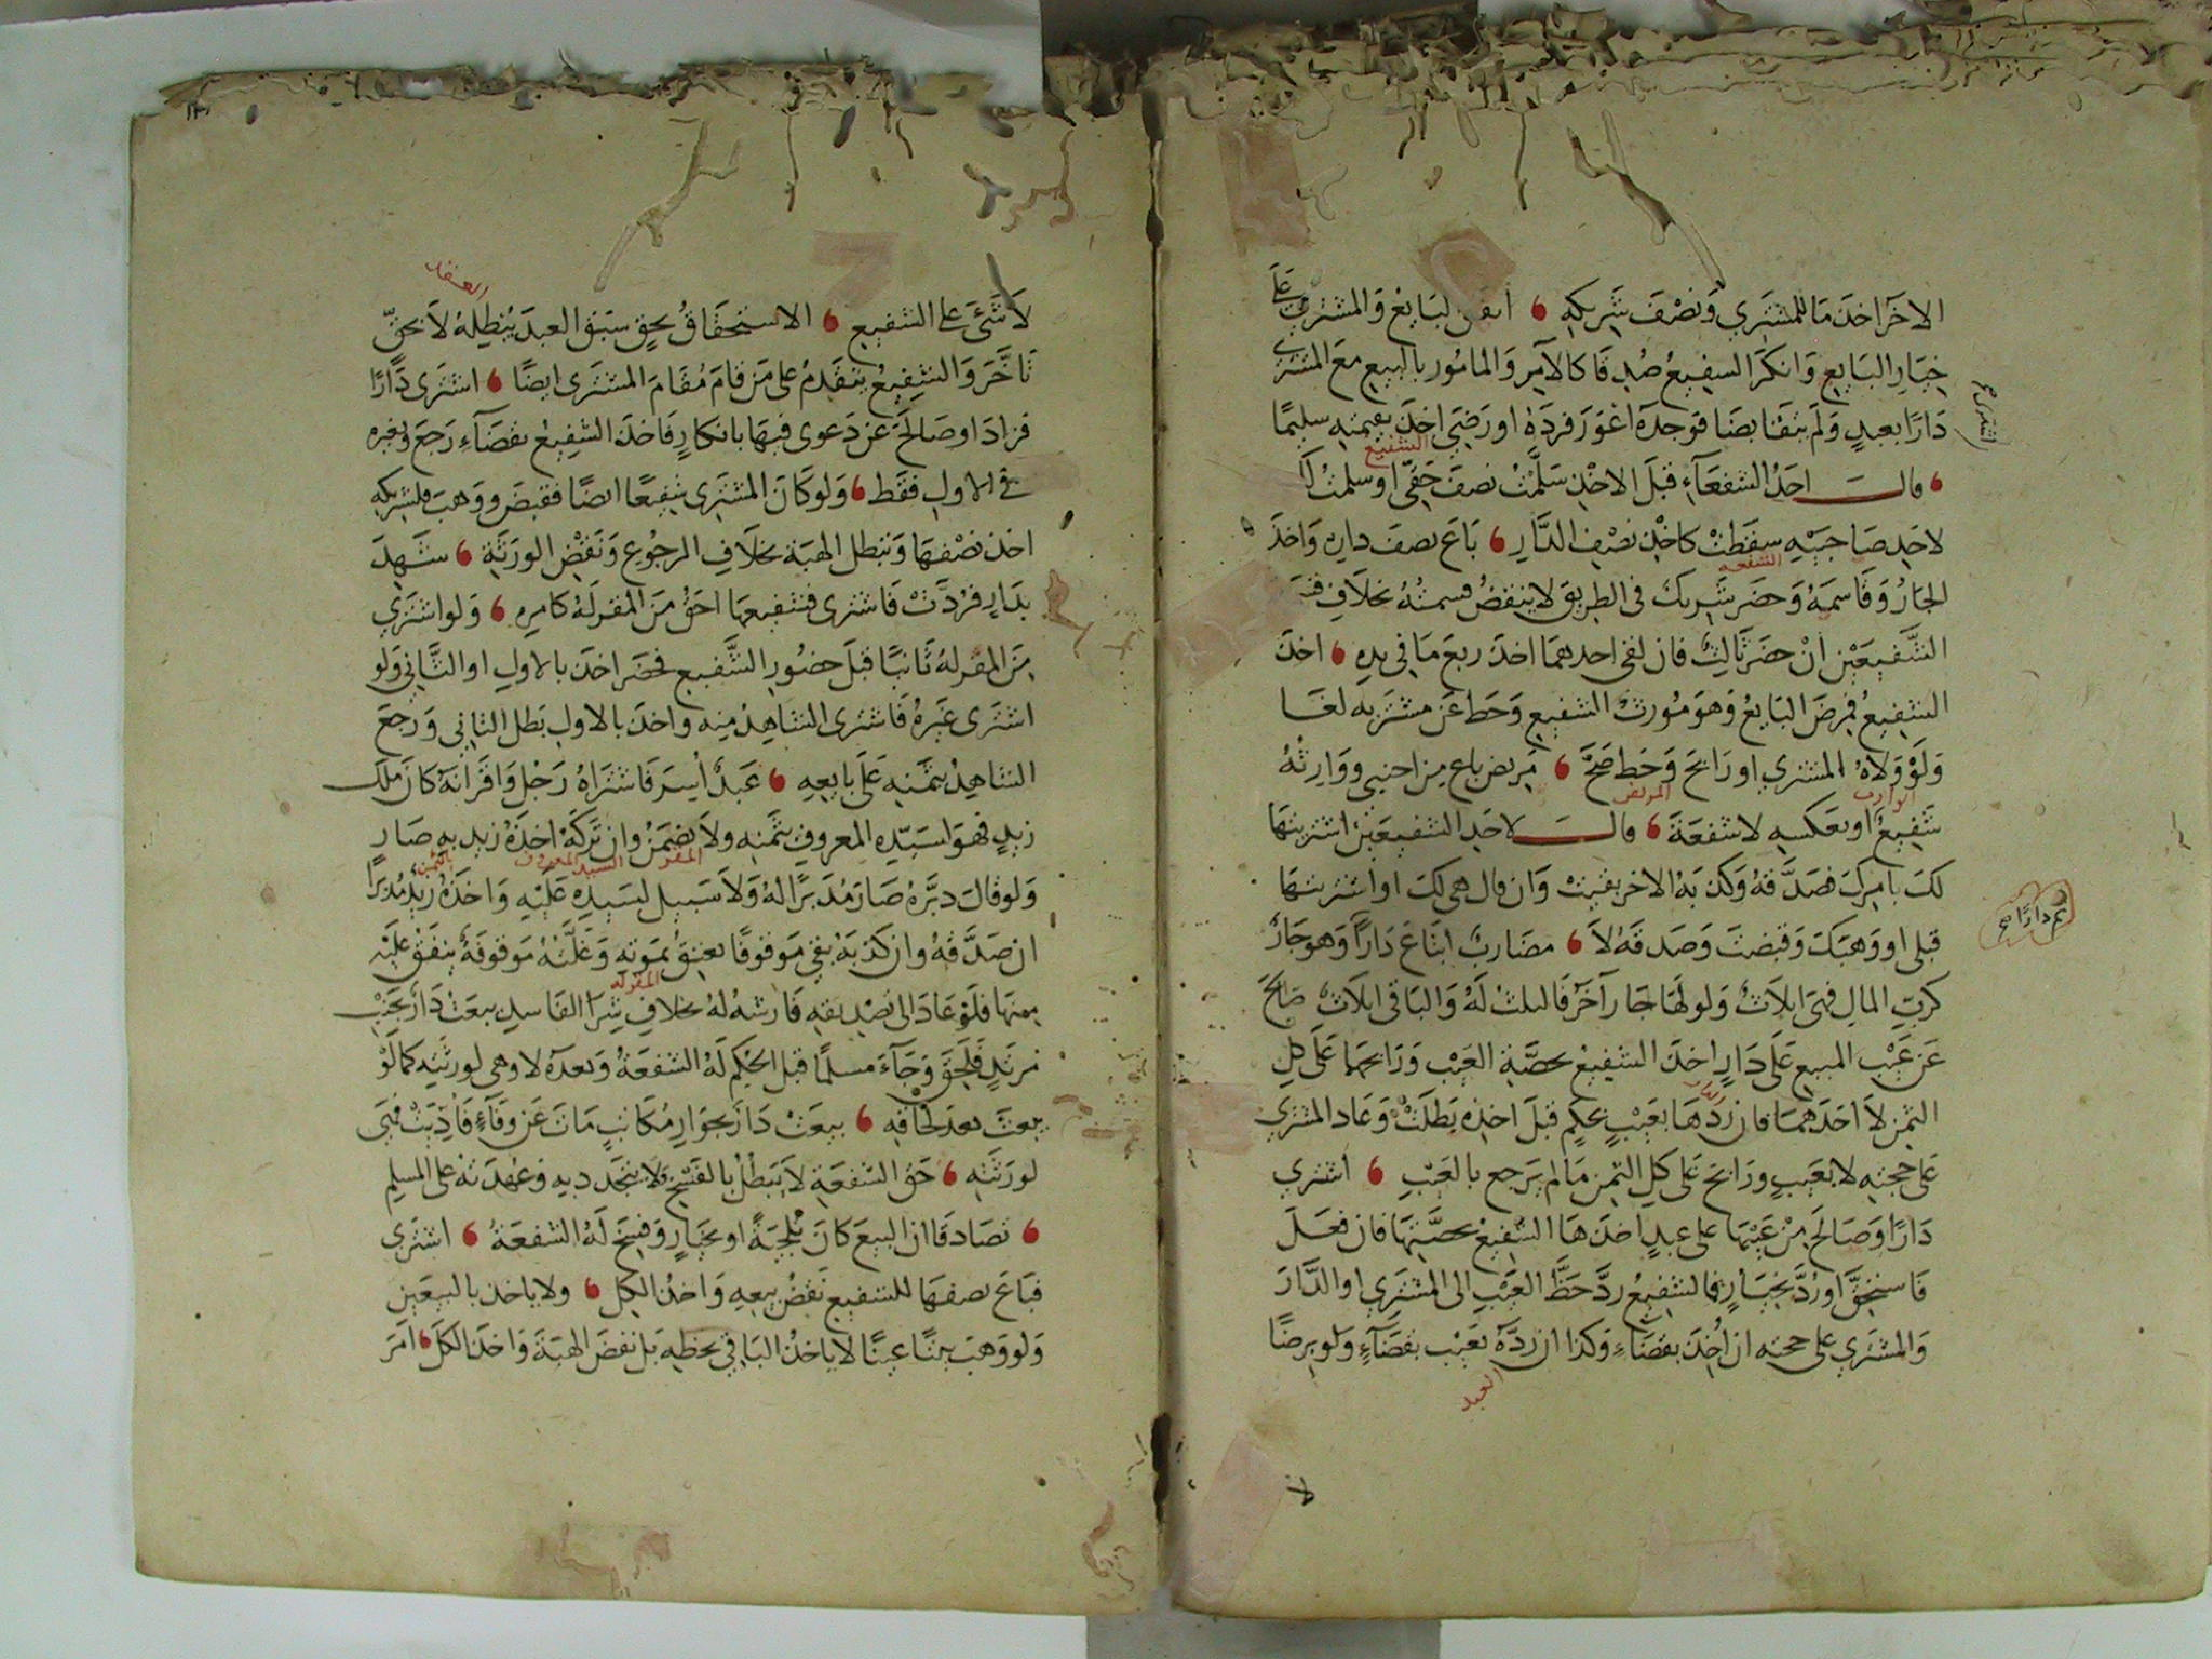 الاخر اخذ ما للمشتري ونصف شريكه ، اتفق البايع والمشتري على
خيار البايع وانكر الشفيع صدقا كالآمر والمامور بالبيع مع المشتري
دارا بعبد ولم يتقابضا فوجده اعور فرده او رضي اخذ بقيمته سليما
الشفيع
، قال احد الشفعاء قبل الاخذ سلمت نصف حقي او سلمت
لاحد صاحبيه سقطت كاخذ نصف الدار ، باع نصف داره واخذ
الشفعه
الجار وقاسمه وحضر شريك في الطريق لا ينقض قسمته بخلاف
الشفيعين ان حضر ثالث فان لقي احدهما اخذ ربع ما في يده ، اخذ
الشفيع فمرض البايع وهو مورث الشفيع وحط عن مشتريه لغا
ولو ولاه المشتري او رابح وحط صح ، مريض باع من اجنبي ووارثه
الوارث المريض
شفيع او بعكسه لا شفعة ، قال لاحد الشفيعين اشتريتها
لك بامرك فصدقه وكذبه الاخر بقيت وان قال هي لك او اشتريتها
قبلي او وهبتك وقبضت وصدقه لا ، مضارب ابتاع دارا وهو جار
كرب المال فهي اثلاث ولو لها جار آخر فالثلث له والباقي اثلاث صالح
عن عيب المبيع على دار اخذ الشفيع بحصة العيب ورابحهما على كل
الثمن لا احدهما فان ردها بعيب بحكم قبل اخذه بطلت وعاد المشتري
على حجته لا بعيب ورابح على كل الثمن ما لم يرجع بالعيب ، اشتري
دارا وصالح من عيبها على عبد اخذها الشفيع بحصتها فان فعل
فاستحق او رد بخيار فالشفيع رد حظ العيب الى المشتري او الدار
والمشتري على حجته ان اخذ بقضاء وكذا ان رده بعيب بقضاء ولو برضا
العبد
لا شيء على الشفيع ، الاستحقاق بحق سبق العبد يبطله لا بحق
تاخر والشفيع يتقدم على من قام مقام المشتري ايضا ، اشترى دارا
فزاد او صالح عن دعوى فيها بانكار فاخذ الشفيع بقضاء رجع وبغيره
في الاول فقط ، ولو كان المشتري شفيعا ايضا فقبض ووهب فلشريكه
اخذ نصفها وتبطل الهبة بخلاف الرجوع ونقض الورثة ، شهد
بدار فردت فاشترى فشفيعها احق من المقر له كامره ، ولو اشتري
من المقر له ثانيا قبل حضور الشفيع فحضر اخذ بالاول او الثاني ولو
اشترى غيره فاشترى الشاهد منه واخذ بالاول بطل الثاني ورجع
الشاهد بثمنه على بايعه ، عبد أسر فاشتراه رجل واقر انه كان ملك
زيد فهو لسيده المعروف بثمنه ولا يضمن وان تركه اخذه زيد به صار
المقر السيد المعروف بالثمن
ولو قال دبره صار مدبرا له ولا سبيل لسيده عليه واخذه زيد مدبرا
ان صدقه وان كذبه بقي موقوفا يعتق بموته وغلته موقوفة ينفق عليه
المقر له
منها فلو عاد الى تصديقه فارشه له بخلاف شرا الفاسد بيعت دار بجنب
مرتد فلحق وجاء مسلما قبل الحكم له الشفعة وبعده لا وهي لورثته كما لو
بيعت بعد لحاقه ، بيعت دار بجوار مكاتب مات عن وفاء فاديت فهي
لورثته ، حق الشفعة لا يبطل بالفسخ فلا يتجدد به وعهدته على المسلم
، تصادقا ان البيع كان تلجئة او بخيار وفسخ له الشفعة ، اشتري
فباع نصفها للشفيع نقض بيعه واخذ الكل ، ولا ياخذ بالبيعين
ولو وهب بيتا عينا لا ياخذ الباقي بحظه بل نقض الهبة واخذ الكل ، امر